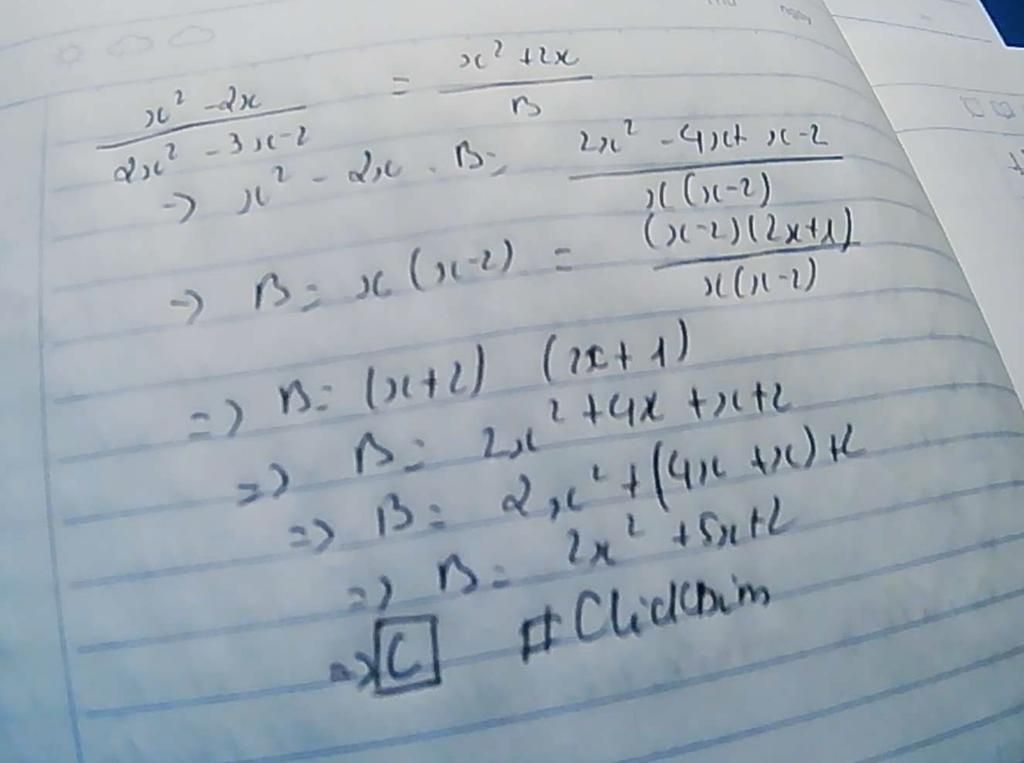 x² - 2x / 2x² - 3x - 2 = x² + 2x / B
→ x² - 2x . B = 2x² - 4x + x - 2 / x(x-2)
→ B = x(x-2) = (x-2)(2x+1) / x(x-2)
=> B = (x+2) (2x+1)
=> B = 2x² + 4x + x + 2
=> B = 2x² + (4x + x) + 2
=> B = 2x² + 5x + 2
=> C #Clickbim